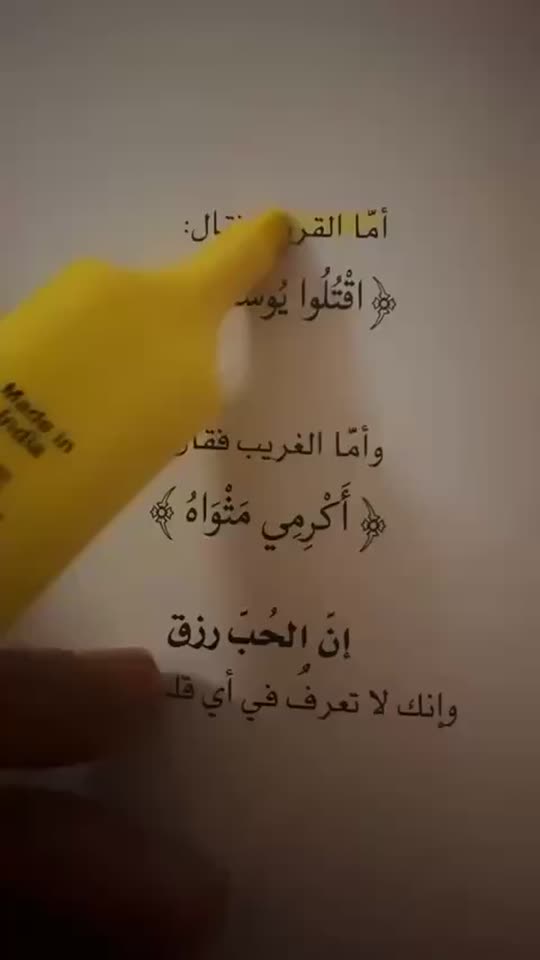 أمّا القريب فقال:
﴿ اقْتُلُوا
وأمّا الغريب فقال
﴿ أَكْرِمِي مَثْوَاهُ ﴾
إنّ الحُبّ رزق
وإنك لا تعرفُ في أي
Made in
India